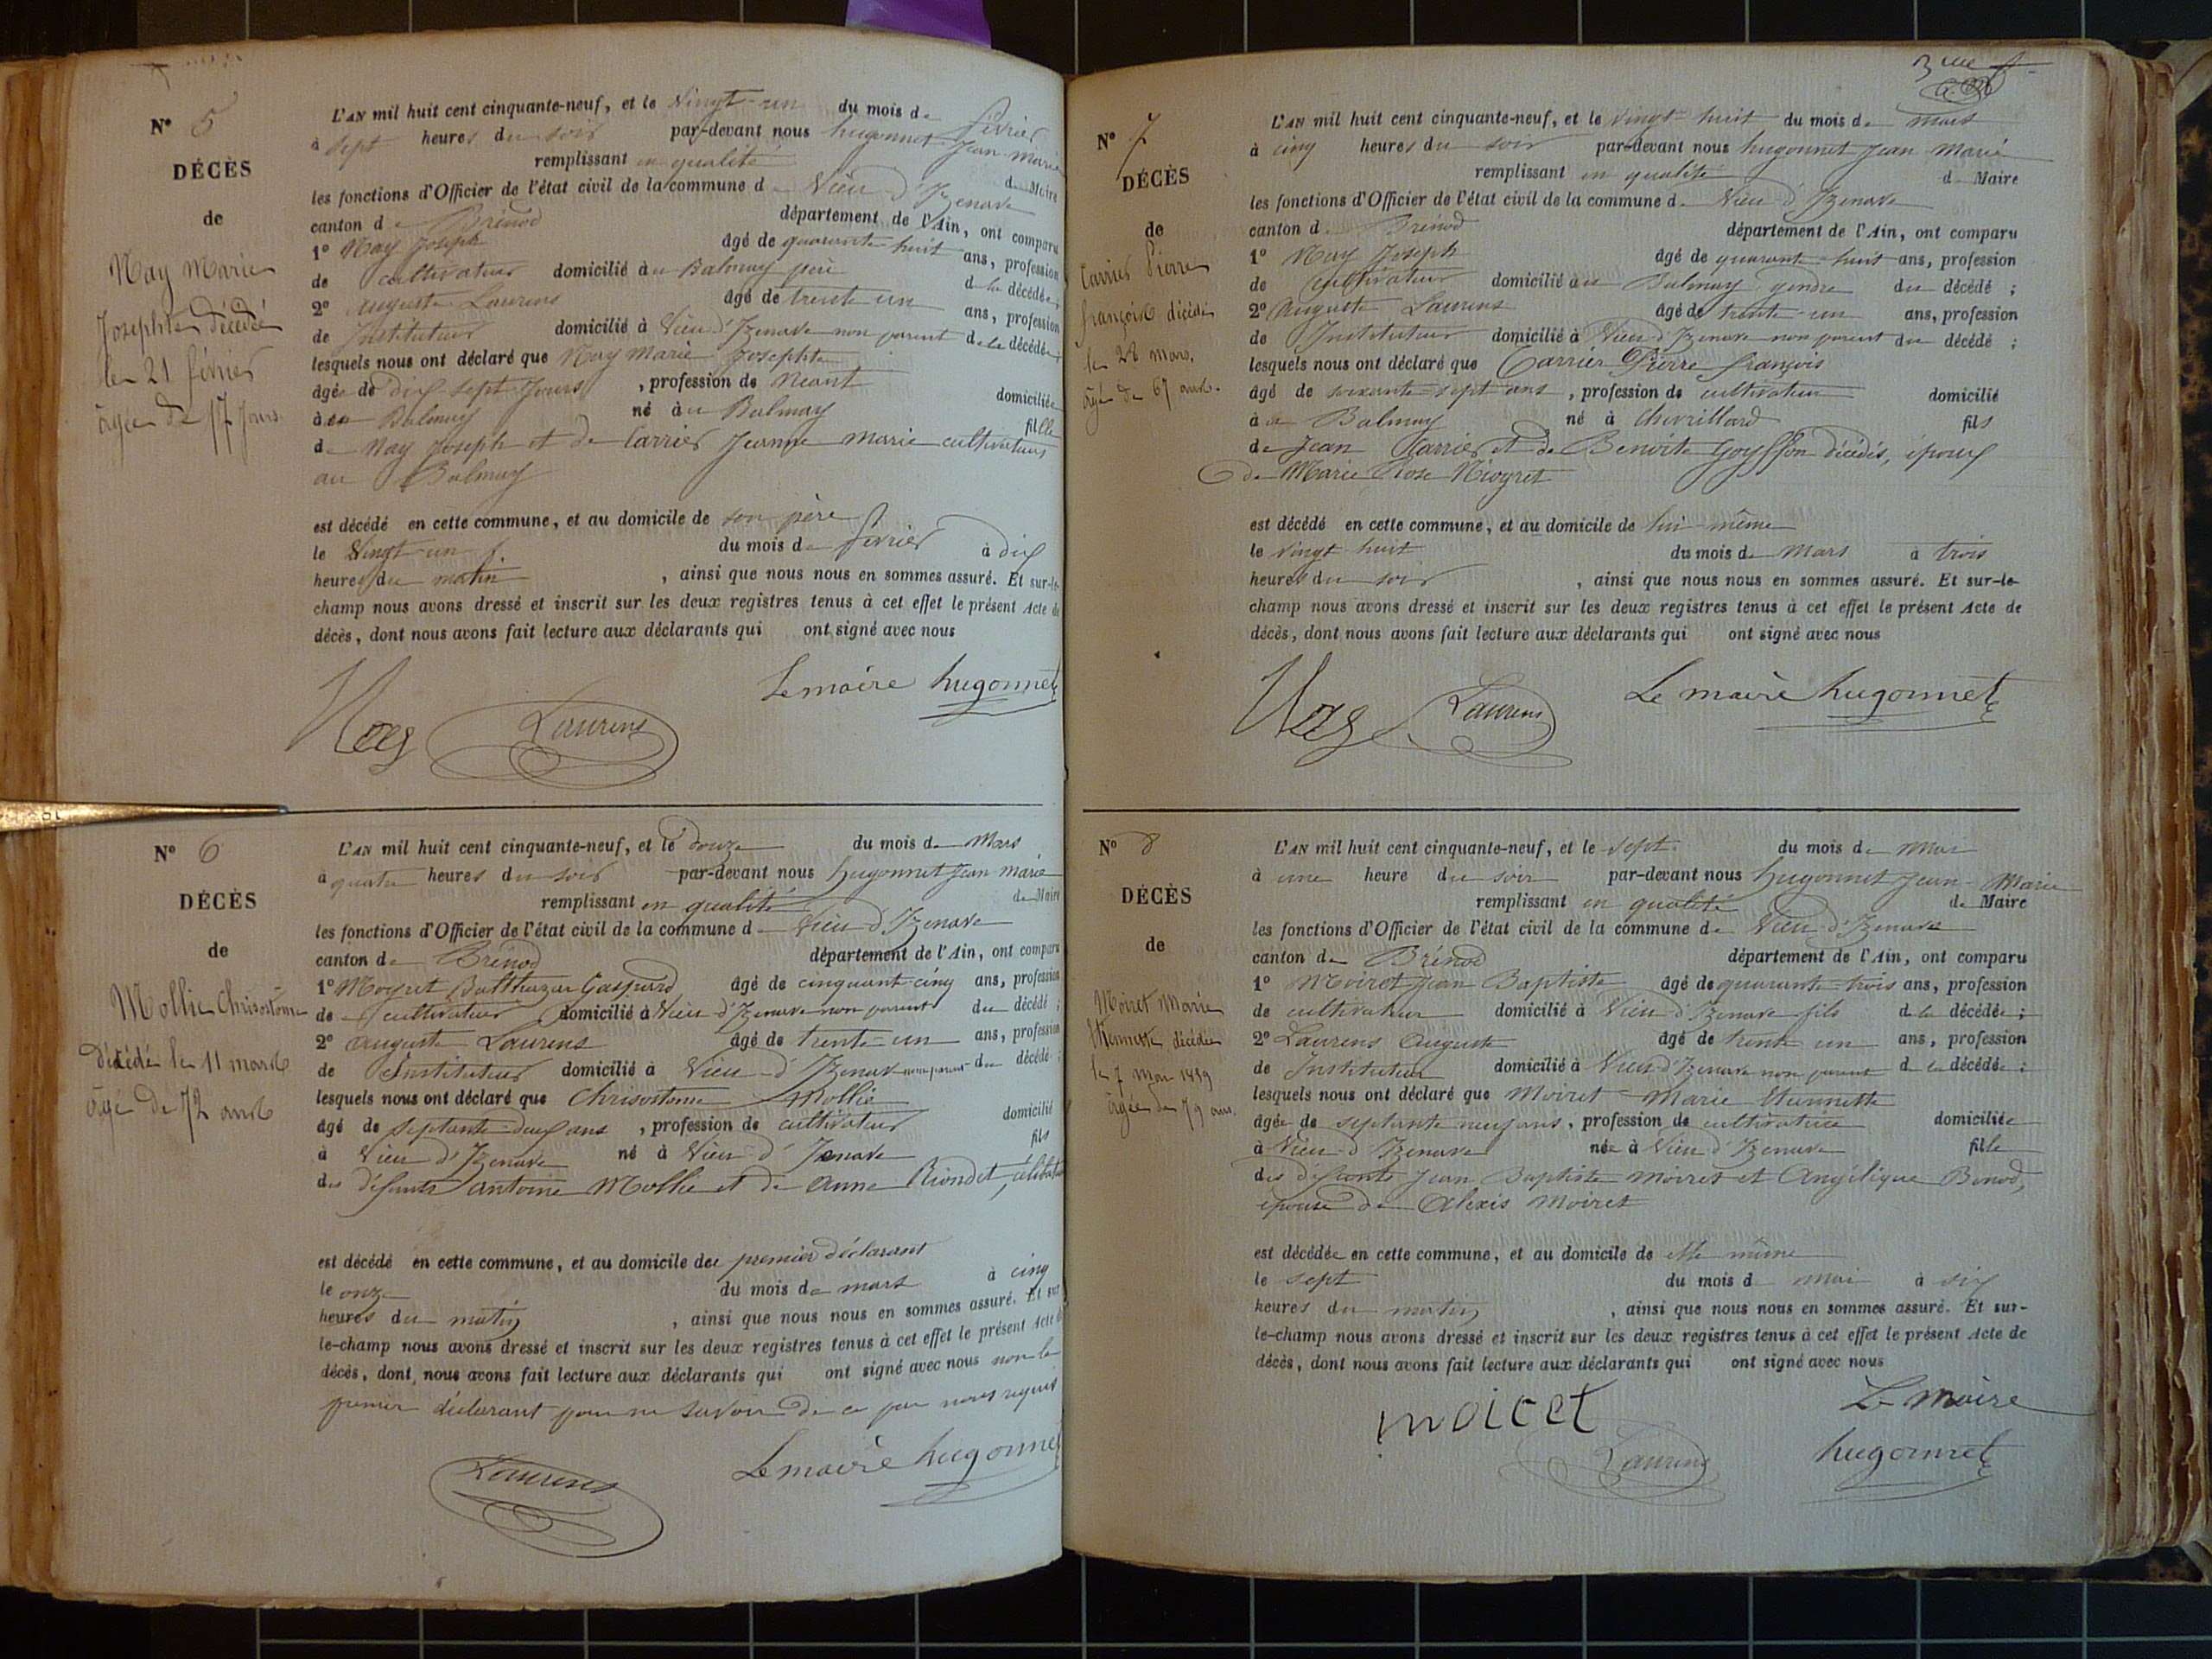 Nº 5
DÉCÈS
de
Nay Marie
Josephte décédé
le 21 février
âgée de 17 jours
L'AN mil huit cent cinquante-neuf, et le vingt-un du mois de février
à sept heures du soir par-devant nous hugonnet Jean-Marie
remplissant en qualité de Maire
les fonctions d'Officier de l'état civil de la commune de Vieu d'Izenave
canton de Brénod département de l'Ain, ont comparu
1º Nay Joseph âgé de quarante-huit ans, profession
de cultivateur domicilié au Balmay père de la décédée;
2º auguste Laurens âgé de trente-un ans, profession
de Instituteur domicilié à Vieu d'Izenave non parent de la décédée;
lesquels nous ont déclaré que Nay Marie Josephte
âgée de dix sept Jours, profession de Néant domiciliée
à au Balmay né à au Balmay fille
de Nay Joseph et de Carrier Jeanne Marie cultivateurs
au Balmay
est décédé en cette commune, et au domicile de son père
le vingt-un f. du mois de février à dix
heures du matin, ainsi que nous nous en sommes assuré. Et sur-le-
champ nous avons dressé et inscrit sur les deux registres tenus à cet effet le présent Acte de
décès, dont nous avons fait lecture aux déclarants qui ont signé avec nous
Le maire hugonnet
Nay Laurens
Nº 6
DÉCÈS
de
Mollie Chrisostôme
Décédé le 11 mars
âgé de 72 ans
L'AN mil huit cent cinquante-neuf, et le douze du mois de Mars
à quatre heures du soir par-devant nous hugonnet Jean marie
remplissant en qualité de Maire
les fonctions d'Officier de l'état civil de la commune de Vieu d'Izenave
canton de Brénod département de l'Ain, ont comparu
1º Moyret Balthazar Gaspard âgé de cinquant-cinq ans, profession
de cultivateur domicilié à Vieu d'Izenave non parent du décédé;
2º auguste Laurens âgé de trente-un ans, profession
de Instituteur domicilié à Vieu d'Izenave non parent du décédé;
lesquels nous ont déclaré que Chrisostome Mollie
âgé de septante-deux ans, profession de cultivateur domicilié
à Vieu d'Izenave né à Vieu d'Izenave fils
des défunts antoine Mollie et de anne Riondet, célibataire
est décédé en cette commune, et au domicile du premier déclarant
le onze du mois de mars à cinq
heures du matin, ainsi que nous nous en sommes assuré. Et sur
le-champ nous avons dressé et inscrit sur les deux registres tenus à cet effet le présent Acte de
décès, dont nous avons fait lecture aux déclarants qui ont signé avec nous non le
premier déclarant pour ne savoir de ce par nous requis
Laurens Le maire hugonnet
Nº 7
DÉCÈS
de
Carrier Pierre
françois décédé
le 28 mars.
âgé de 67 ans.
L'AN mil huit cent cinquante-neuf, et le vingt huit du mois de mars
à cinq heures du soir par-devant nous hugonnet Jean Marie
remplissant en qualité de Maire
les fonctions d'Officier de l'état civil de la commune de Vieu d'Izenave
canton de Brénod département de l'Ain, ont comparu
1º Nay Joseph âgé de quarant-huit ans, profession
de cultivateur domicilié au Balmay gendre du décédé;
2º Auguste Laurens âgé de trente-un ans, profession
de Instituteur domicilié à Vieu d'Izenave non parent du décédé;
lesquels nous ont déclaré que Carrier Pierre françois
âgé de soixante-sept ans, profession de cultivateur domicilié
à au Balmay né à Chevrillard fils
de Jean Carrier et de Benoite Goyffon décédés, époux
de Marie Rose Niogret
est décédé en cette commune, et au domicile de lui-même
le vingt huit du mois de Mars à trois
heures du soir, ainsi que nous nous en sommes assuré. Et sur-le-
champ nous avons dressé et inscrit sur les deux registres tenus à cet effet le présent Acte de
décès, dont nous avons fait lecture aux déclarants qui ont signé avec nous
Nay Laurens Le maire hugonnet
Nº 8
DÉCÈS
de
Moiret Marie
Etiennette décédée
le 7 mai 1859
âgée de 79 ans.
L'AN mil huit cent cinquante-neuf, et le sept du mois de mai
à une heure du soir par-devant nous hugonnet Jean-Marie
remplissant en qualité de Maire
les fonctions d'Officier de l'état civil de la commune de Vieu d'Izenave
canton de Brénod département de l'Ain, ont comparu
1º Moiret Jean Baptiste âgé de quarante-trois ans, profession
de cultivateur domicilié à Vieu d'Izenave fils de la décédée;
2º Laurens Auguste âgé de trente un ans, profession
de Instituteur domicilié à Vieu d'Izenave non parent de la décédée;
lesquels nous ont déclaré que Moiret Marie Etiennette
âgée de septante neuf ans, profession de cultivatrice domiciliée
à Vieu d'Izenave née à Vieu d'Izenave fille
des défunts Jean Baptiste Moiret et Angélique Bonod,
épouse de Alexis Moiret
est décédée en cette commune, et au domicile de elle même
le sept du mois de mai à six
heures du matin, ainsi que nous nous en sommes assuré. Et sur-
le-champ nous avons dressé et inscrit sur les deux registres tenus à cet effet le présent Acte de
décès, dont nous avons fait lecture aux déclarants qui ont signé avec nous
moiret Le Maire
Laurens hugonnet